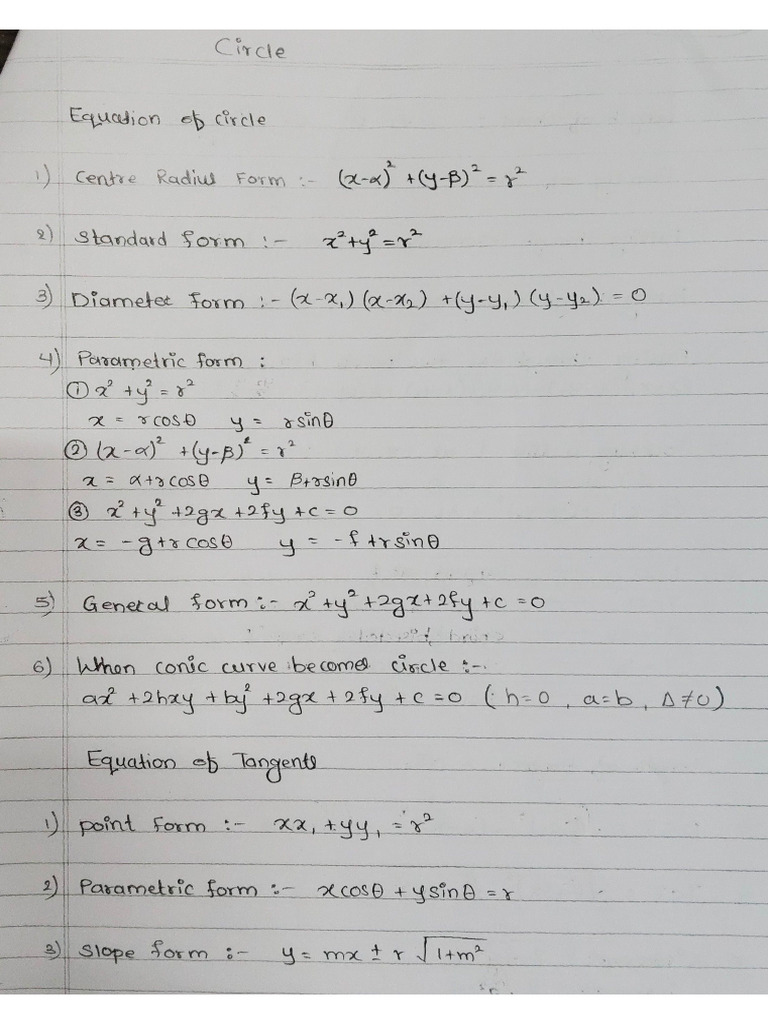 Circle
Equation of circle
1) Centre Radius Form :- (x-α)² +(y-β)² = r²
2) Standard form :- x²+y²=r²
3) Diameter form :- (x-x₁) (x-x₂) +(y-y₁) (y-y₂) = 0
4) Parametric form :
① x² +y² = r²
x = rcosθ y = rsinθ
② (x-α)² +(y-β)² = r²
x = α+rcosθ y = β+rsinθ
③ x² +y² +2gx +2fy +c = 0
x = -g+rcosθ y = -f+rsinθ
5) General form :- x² +y² +2gx+2fy +c =0
6) When conic curve becomes circle :-
ax² +2hxy +by² +2gx + 2fy + c =0 ( h=0 , a=b, Δ≠0)
Equation of Tangents
1) point form :- xx₁ +yy₁ = r²
2) Parametric form :- xcosθ + ysinθ = r
3) Slope form :- y = mx ± r √1+m²